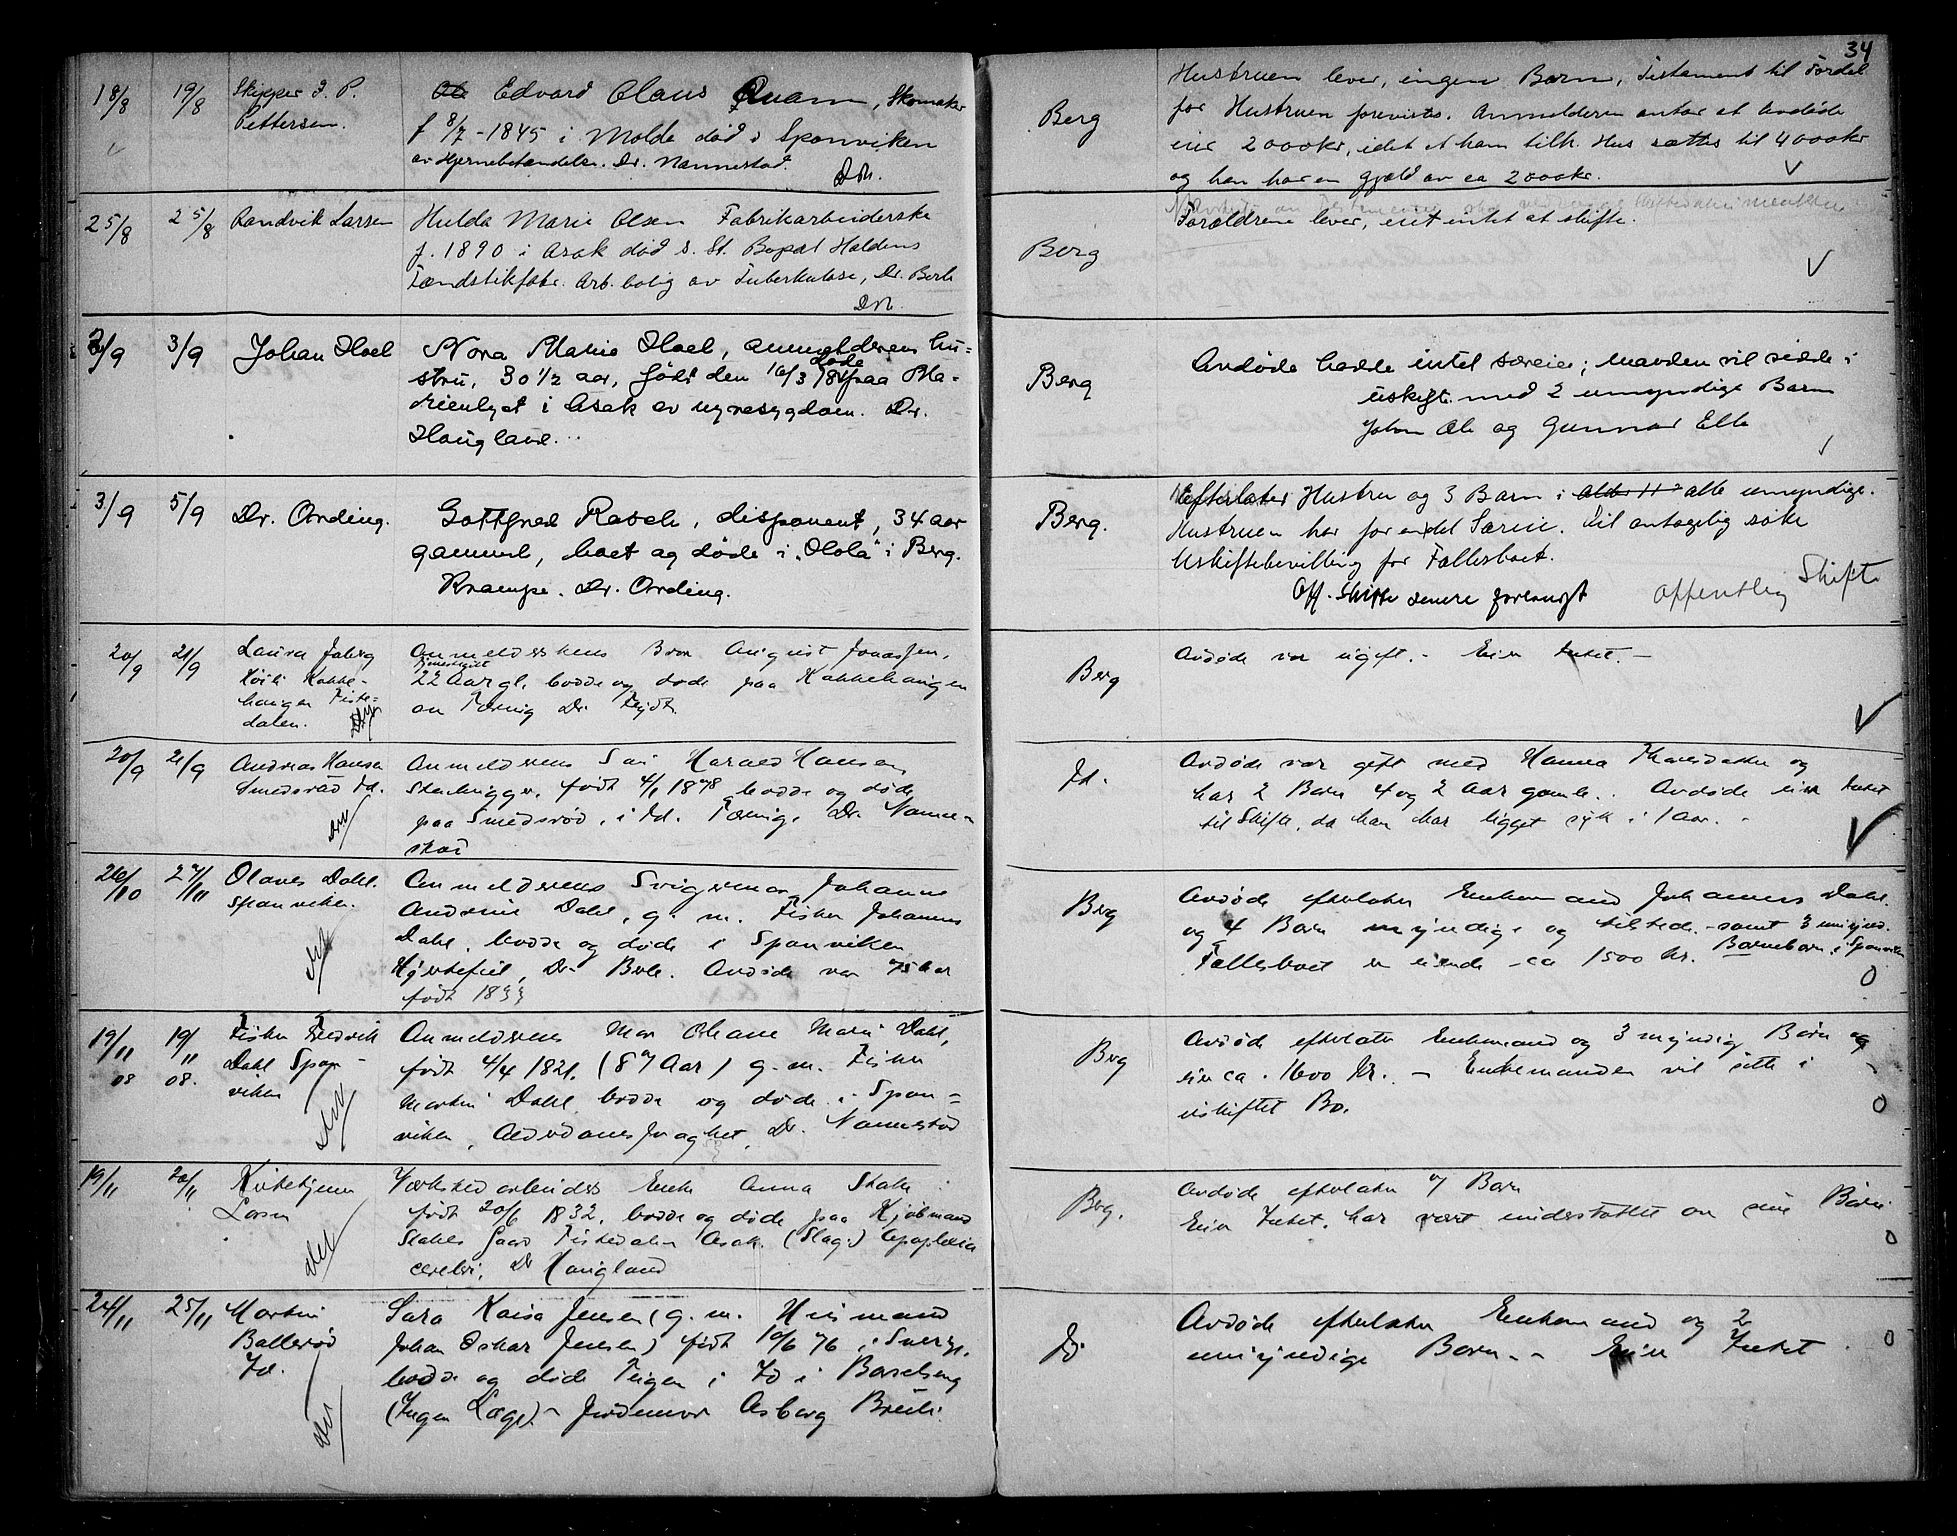 34
18/8 19/8 Skipper I. P.
Pettersen.
Edvard Claus Quam, Skomaker
f 8/7-1845 i Molde död i Sponviken
av Hjernebetændelse. Dr. Nannestad.
Berg
Hustruen lever, ingen Barn, Testament til Fordel
for Hustruen forevises. Anmelderen antar at avdöde
eier 2000kr, idet et ham tilh. Hus sættes til 4000kr
og han har en gjæld av ca 2000kr.
25/8 25/8 Randvik Larsen
Hulda Marie Olsen Fabrikarbeiderske
f. 1890 i Asak död s. St. Bopæl Haldens
Tændstikfabr. Arb. bolig av Tuberkulose, Dr. Berle
Berg
Forældrene lever, intet at skifte.
2/9 3/9 Johan Hoel
Nora Marie Hoel, anmelderens hu-
stru, 30 1/2 aar, født den 16/3 døde paa Ma-
rienlyst i Asak av nyresygdom. Dr.
Haugland.
Berg
Avdøde hadde intet særeie; manden vil sidde i
uskifte med 2 umyndige Barn
Johan Ole og Gunnar
3/9 5/9 Dr. Ording.
Gottfred Rasch, disponent, 34 aar
gammel, boet og døde i "Hola" i Berg.
Krampe. Dr. Ording.
Berg.
Efterlater Hustru og 3 Barn i alle umyndige.
Hustruen har for en del Særeie. Vil antagelig søke
Uskiftebevilling for Fællesboet.
Off. Skifte senere forlangt offentlig Skifte
20/9 21/9 Laura
Kakke-
haugen Tiste-
dalen.
Anmelderskens Bror August Jonassen,
22 Aar gl. bodde og døde paa Kakkehaugen
av Tæring Dr.
Berg
Avdøde var ugift. - Eier Intet. -
20/9 21/9 Andreas Hansen
Smedsrød Id.
Anmelderens Søn Harald Hansen
Stenhugger, født 4/1 1878 bodde og døde
paa Smedsrød, i Id. Tæring. Dr. Nanne-
stad
Id.
Avdøde var gift med Hanna og
har 2 Barn 4 og 2 Aar gamle. Avdøde eier Intet
til Skifte, da han har ligget syk i 1 Aar. -
26/10 27/11 Olaves Dahl.
Sponviken.
Anmelderens Svigermor Johanne
Andrine Dahl, g. m. Fisker Johannes
Dahl, bodde og døde i Sponviken
Hjertefeil, Dr. Berle. Avdøde var 75 Aar
født 1833
Berg
Avdøde efterlater Enkemand Johannes Dahl.
og 4 Barn myndige og tilstede. - samt 3 umynd.
Barnebarn i Sponviken
Fællesboet er eiende ca 1500 kr.
0
19/11 08 19/11 08. Fisker Fredrik
Dahl Spon-
viken
Anmelderens Mor Oleane Marie Dahl,
født 4/4 1821. (87 Aar) g. m. Fisker
Martin Dahl bodde og døde i Spon-
viken, Alderdomssvaghet, Dr. Nannestad
Berg
Avdøde efterlater Enkemand og 3 myndig Børn og
eier ca. 1600 Kr. - Enkemanden vil sitte i
uskiftet Bo.
0
19/11 20/11 Kirketjener
Larsen
Værkstedarbeiders Enke Anna Stake
født 20/6 1832, bodde og døde paa Kjøbmand
Stakes Gaard Tistedalen Asak. (Slag:) Apoplexia
cerebri, Dr Haugland
Berg.
Avdøde efterlater 7 Barn
Eier Intet. har vært understøttet av sine Børn
0
24/11 25/11 Martin
Ballerød
Id.
Sara Kaisa Jensen (g. m. Husmand
Johan Oskar Jensen) født 10/6 76 i Sverige.
bodde og døde Teigen i Id i Barselseng
(Ingen Læge). - Jordemor Asborg Breili.
Id
Avdøde efterlater Enkemand og 2
umyndige Barn. - Eier Intet.
0